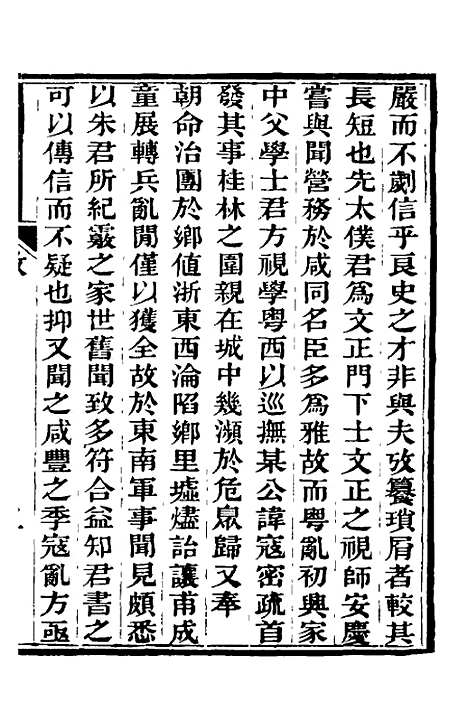 嚴而不劌信乎良史之才非與夫攷纂瑣屑者較其
長短也先太僕君爲文正門下士文正之視師安慶
嘗與聞營務於咸同名臣多爲雅故而粵亂初興家
中父學士君方視學粵西以巡撫某公諱寇密疏首
發其事桂林之圍親在城中幾瀕於危臮歸又奉
朝命治團於鄉値浙東西淪陷鄉里墟燼詒讓甫成
童展轉兵亂閒僅以獲全故於東南軍事聞見頗悉
以朱君所紀覈之家世舊聞致多符合益知君書之
可以傳信而不疑也抑又聞之咸豐之季寇亂方亟